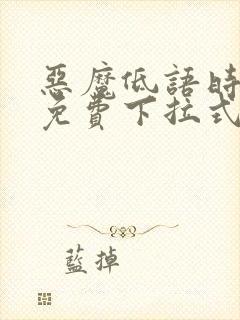 惡魔低語時
免費下拉式
藍掉